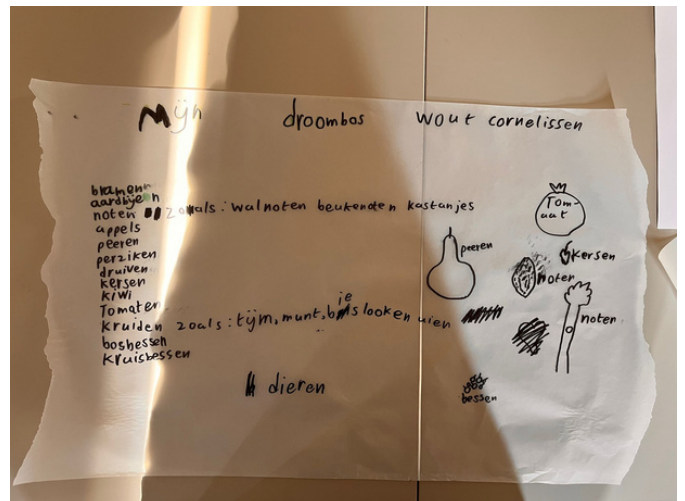 Mijn droombos wout cornelissen
bramen
aardbyen
noten zoals: walnoten beukenoten kastanjes
appels
peeren
perziken
druiven
kersen
kiwi
Tomaten
kruiden zoals: tijm, munt, bieslook en uien
bosbessen
kruisbessen
dieren
Tom-
aat
peeren
kersen
noten
noten
bessen